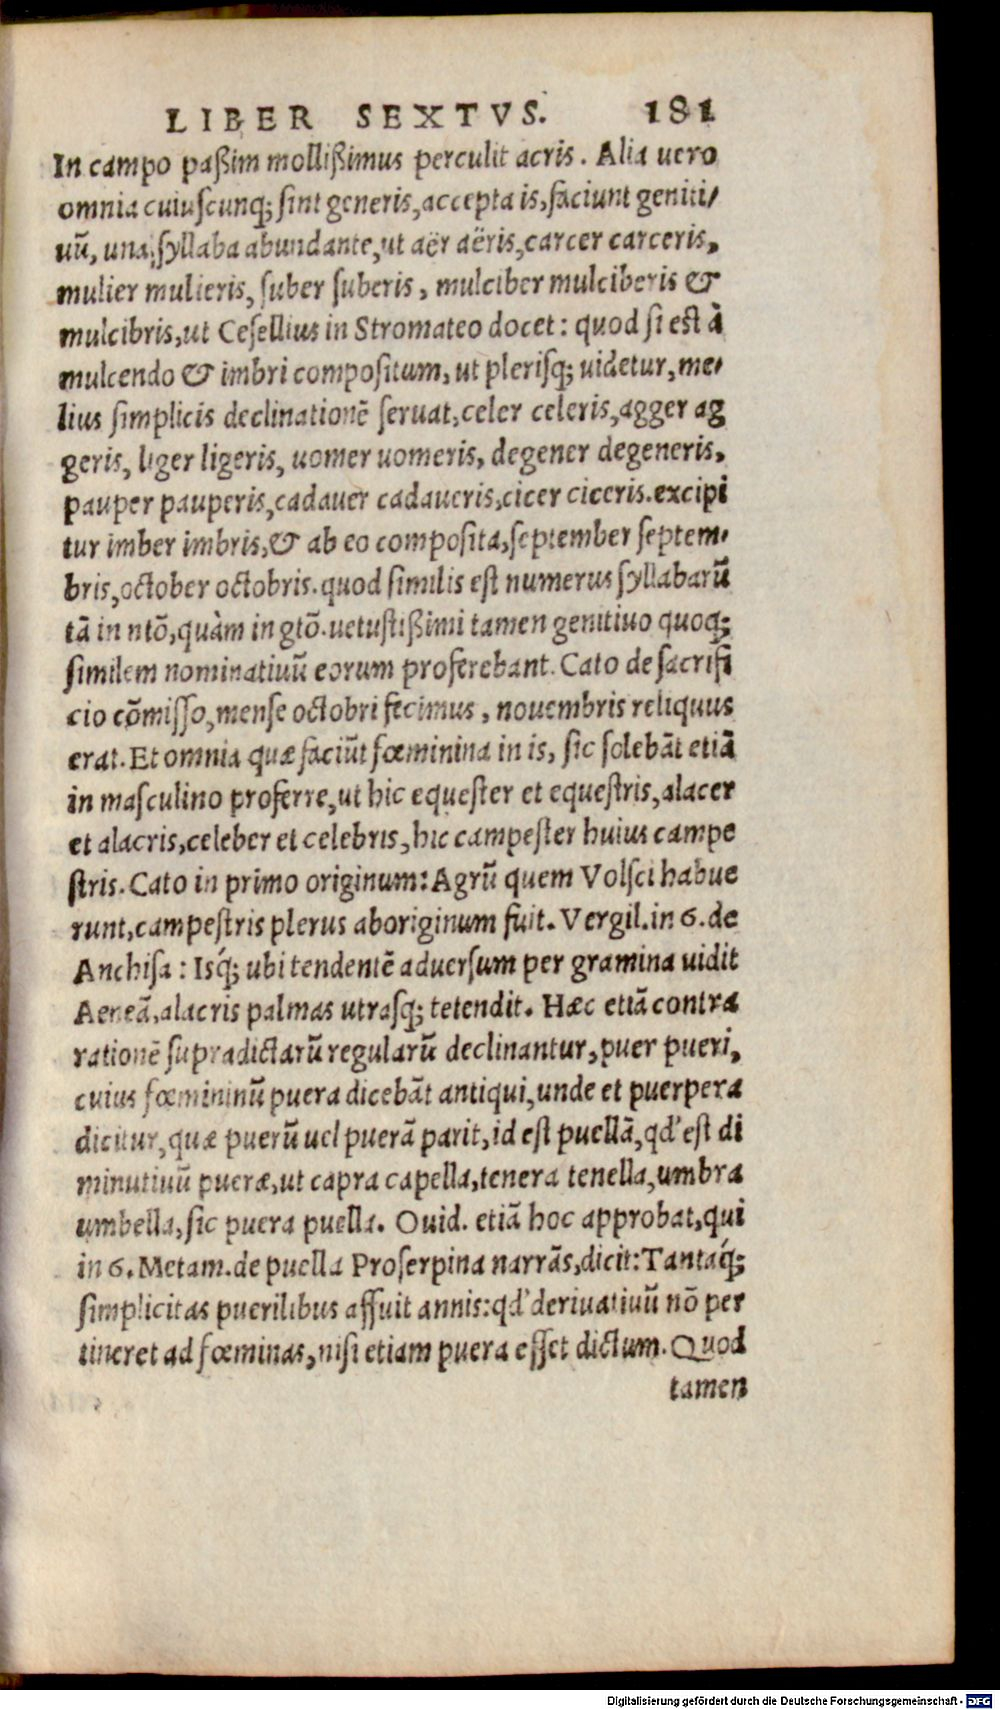 LIBER SEXTVS. 181
In campo paßim mollißimus perculit acris. Alia uero
omnia cuiuscunq; sint generis, accepta is, faciunt geniti/
uũ, una syllaba abundante, ut aër aëris, carcer carceris,
mulier mulieris, suber suberis, mulciber mulciberis &
mulcibris, ut Cesellius in Stromateo docet: quod si est à
mulcendo & imbri compositum, ut plerisq; uidetur, me/
lius simplicis declinationẽ seruat, celer celeris, agger ag
geris, liger ligeris, uomer uomeris, degener degeneris,
pauper pauperis, cadauer cadaueris, cicer ciceris. excipi
tur imber imbris, & ab eo composita, september septem/
bris, october octobris. quod similis est numerus syllabarũ
tã in ntõ, quàm in gtõ. uetustißimi tamen genitiuo quoq;
similem nominatiuũ eorum proferebant. Cato de sacrifi
cio cõmisso, mense octobri fecimus, nouembris reliquus
erat. Et omnia quæ faciũt fœminina in is, sic solebãt etiã
in masculino proferre, ut hic equester et equestris, alacer
et alacris, celeber et celebris, hic campester huius campe
stris. Cato in primo originum: Agrũ quem Volsci habue
runt, campestris plerus aboriginum fuit. Vergil. in 6. de
Anchisa: Isq́; ubi tendentẽ aduersum per gramina uidit
Aeneã, alacris palmas utrasq; tetendit. Hæc etiã contra
rationẽ supradictarũ regularũ declinantur, puer pueri,
cuius fœmininũ puera dicebãt antiqui, unde et puerpera
dicitur, quæ puerũ uel puerã parit, id est puellã, qd' est di
minutiuũ pueræ, ut capra capella, tenera tenella, umbra
umbella, sic puera puella. Ouid. etiã hoc approbat, qui
in 6. Metam. de puella Proserpina narrãs, dicit: Tantaq́;
simplicitas puerilibus affuit annis: qd' deriuatiuũ nõ per
tineret ad fœminas, nisi etiam puera esset dictum. Quod
tamen
Digitalisierung gefördert durch die Deutsche Forschungsgemeinschaft - DFG